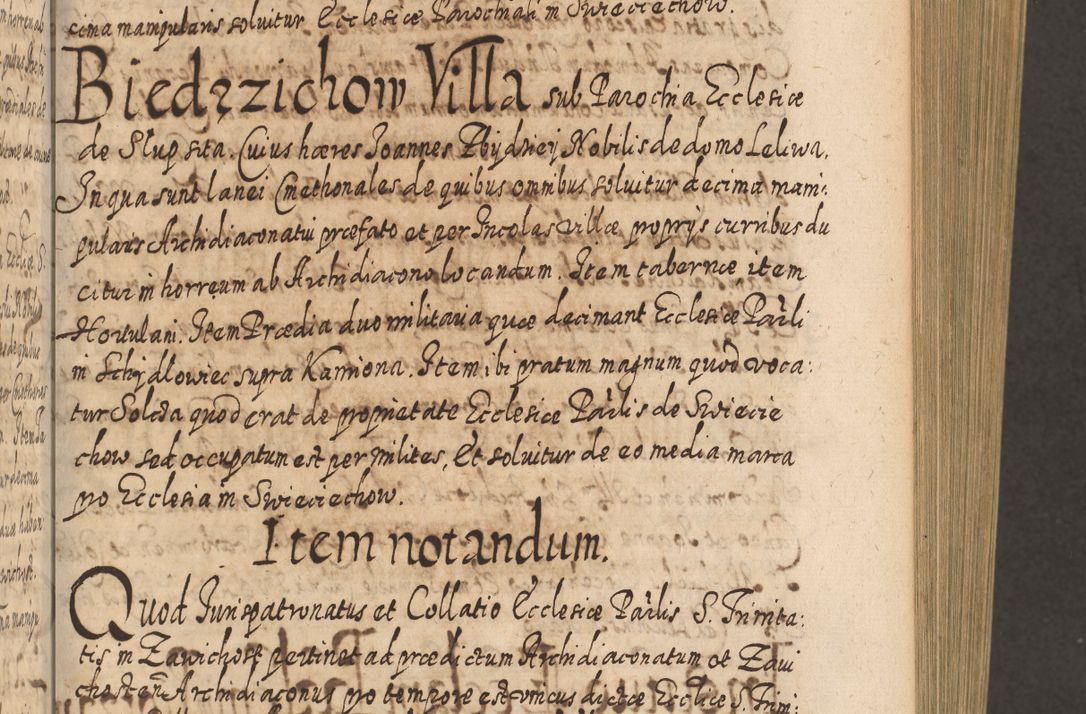 cima manipularis soluitur Ecclesiæ Parochiali in Swieciechow.
Biedrzichow Villa sub Parochia Ecclesiæ
de Slup sita. Cuius hæres Joannes Nobilis de domo Leliwa.
In qua sunt lanei Cmethonales de quibus omnibus soluitur decima mani-
pularis Archidiaconatui præfato et per Incolas villæ proprys curribus du
citur in horreum ab Archidiacono locandum. Item tabernæ item
Hortulani. Item Prædia duo militaria quæ decimant Ecclesiæ Parli
in Schydlowiec supra Kamiona. Item ibi pratum magnum quod voca:
tur quod erat de proprietate Ecclesiæ Parlis de Swiecie
chow sed occupatum est per milites, Et soluitur de eo media marca
pro Ecclesia in Swieciechow.
Item notandum.
Quod Jurispatronatus et Collatio Ecclesiæ Parlis S. Trinita:
tis in Zawichost pertinet ad prædictum Archidiaconatum et Zawi
chosten Archidiaconus pro tempore est vnicus dictæ Ecclice S. Trini: